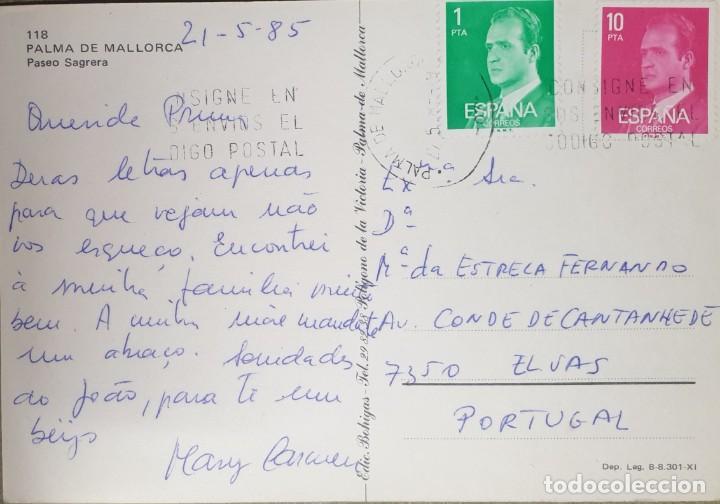 118
PALMA DE MALLORCA
Paseo Sagrera
21-5-85
NSIGNE EN
S ENVIOS EL
DIGO POSTAL
Duas letras apenas
para que vejam não
vos esqueço. Encontrei
à minha família
bem. A minha mãe
um abraço. Saudades
do João, para te um
beijo
Mary Carmen
Edic. Bohigas - Tel. - Polígono de la Victoria - Palma de Mallorca
1
PTA
ESPAÑA
CORREOS
10
PTA
ESPAÑA
CORREOS
PALMA DE MALLORCA
CONSIGNE EN
CODIGO POSTAL
Exma Sra.
Dª
Mª da ESTRELA FERNANDO
Av. CONDE DE CANTANHEDE
7350 ELVAS
PORTUGAL
Dep. Leg. B-8.301-XI
todocoleccion